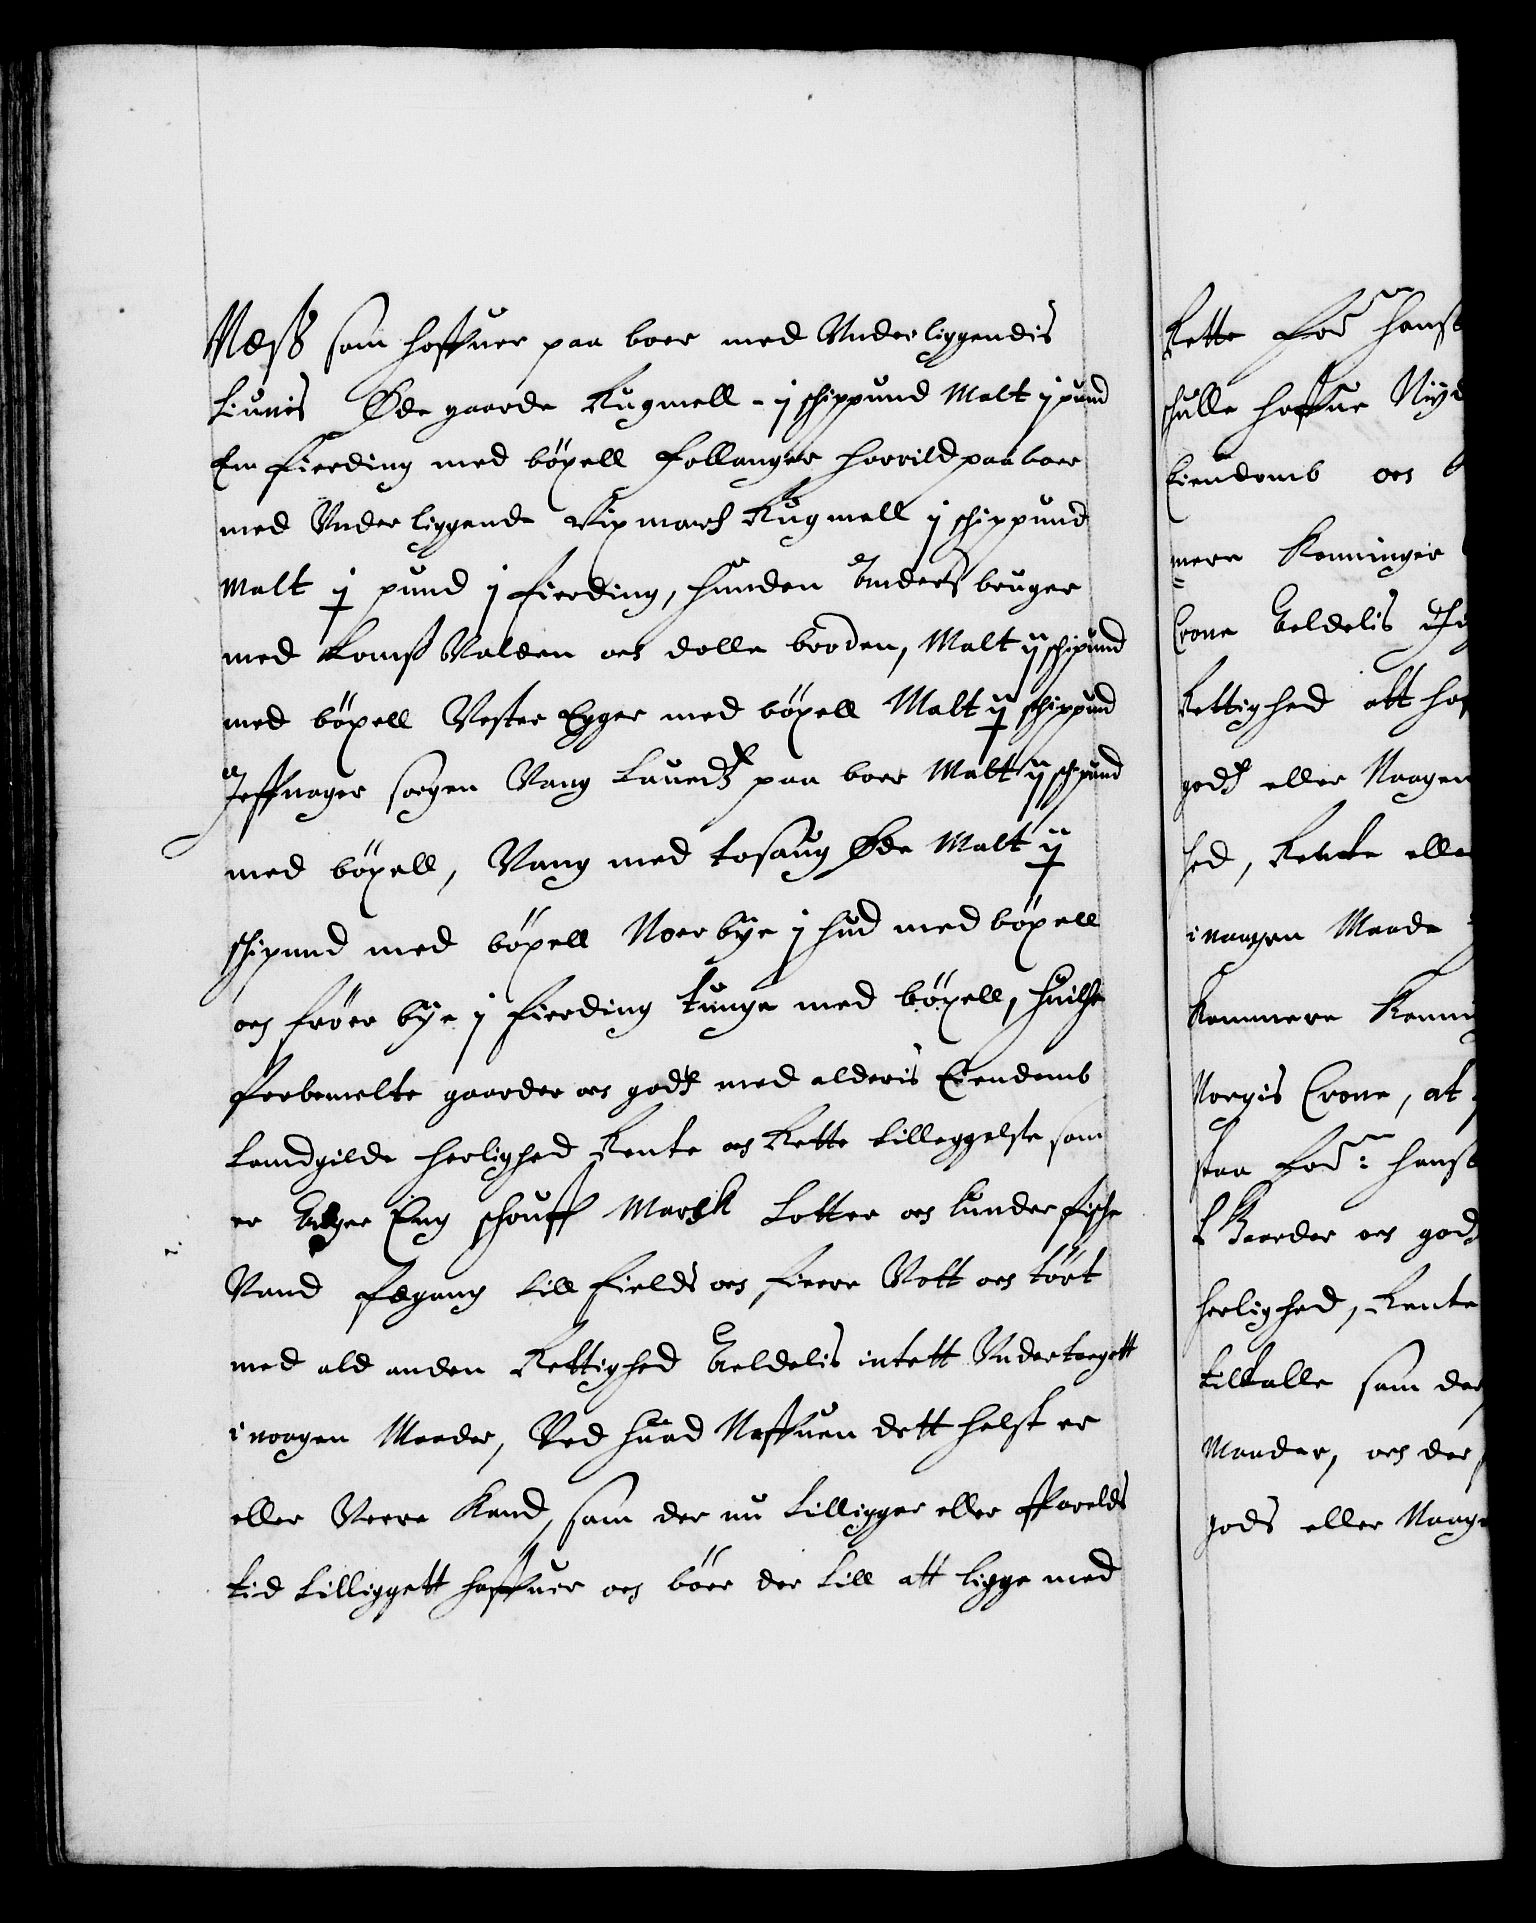 Næß som hoffuer paa boer med Vnderliggendis
Liunis Øde gaarde Rugmell - ij schippund Malt j pund
Em fierding med böxell Follanger Horrild paaboer
med Vnderliggende Vixmarch Rugmell ij schippund
Malt ij pund j fierding, Hunden Anders bruger
med Lomß Valden och dolle broden, Malt ij schipund
med böxell Vester Egger med böxell Malt ij schippund
Jeffnager sogen Vang Lauedtz paa boer Malt ij schipund
med böxell, Vang med tosaug Øde Malt ij
schipund med böxell Noerbÿe j hud med böxell
och fröer bÿe j fierding tunge med böxell, Huilche
forbemelte gaarder och godtz med alderis Eiendomb
Landgilde herlighed Rente och Rette tilleggelse som
er Agger Eng schouff March Lotter och lunder fische
Vand fægang till fields och fierre Vott och tört
med ald anden Rettighed Aeldelis intett Vndertagett
i nogen Maader, Ved huad Naffuen dett helst er
eller Verre Kand, som der nu tilligger eller Aff arelds
tid tilliggett haffuer och böer der till att ligge med
Rette for hans
schulle haffue Nÿd
Eiendomb och
mere Konninger
Crone Aeldelis
Rettighed att haf
godtz eller Naagen
hed, Rente elle
i naagen Maade
Kommere Konni
Norgis Crone, at
staa for: hans
Gaarder och god
herlighed, Rente
tilfalle som der
Maader, och der
gods eller Naage